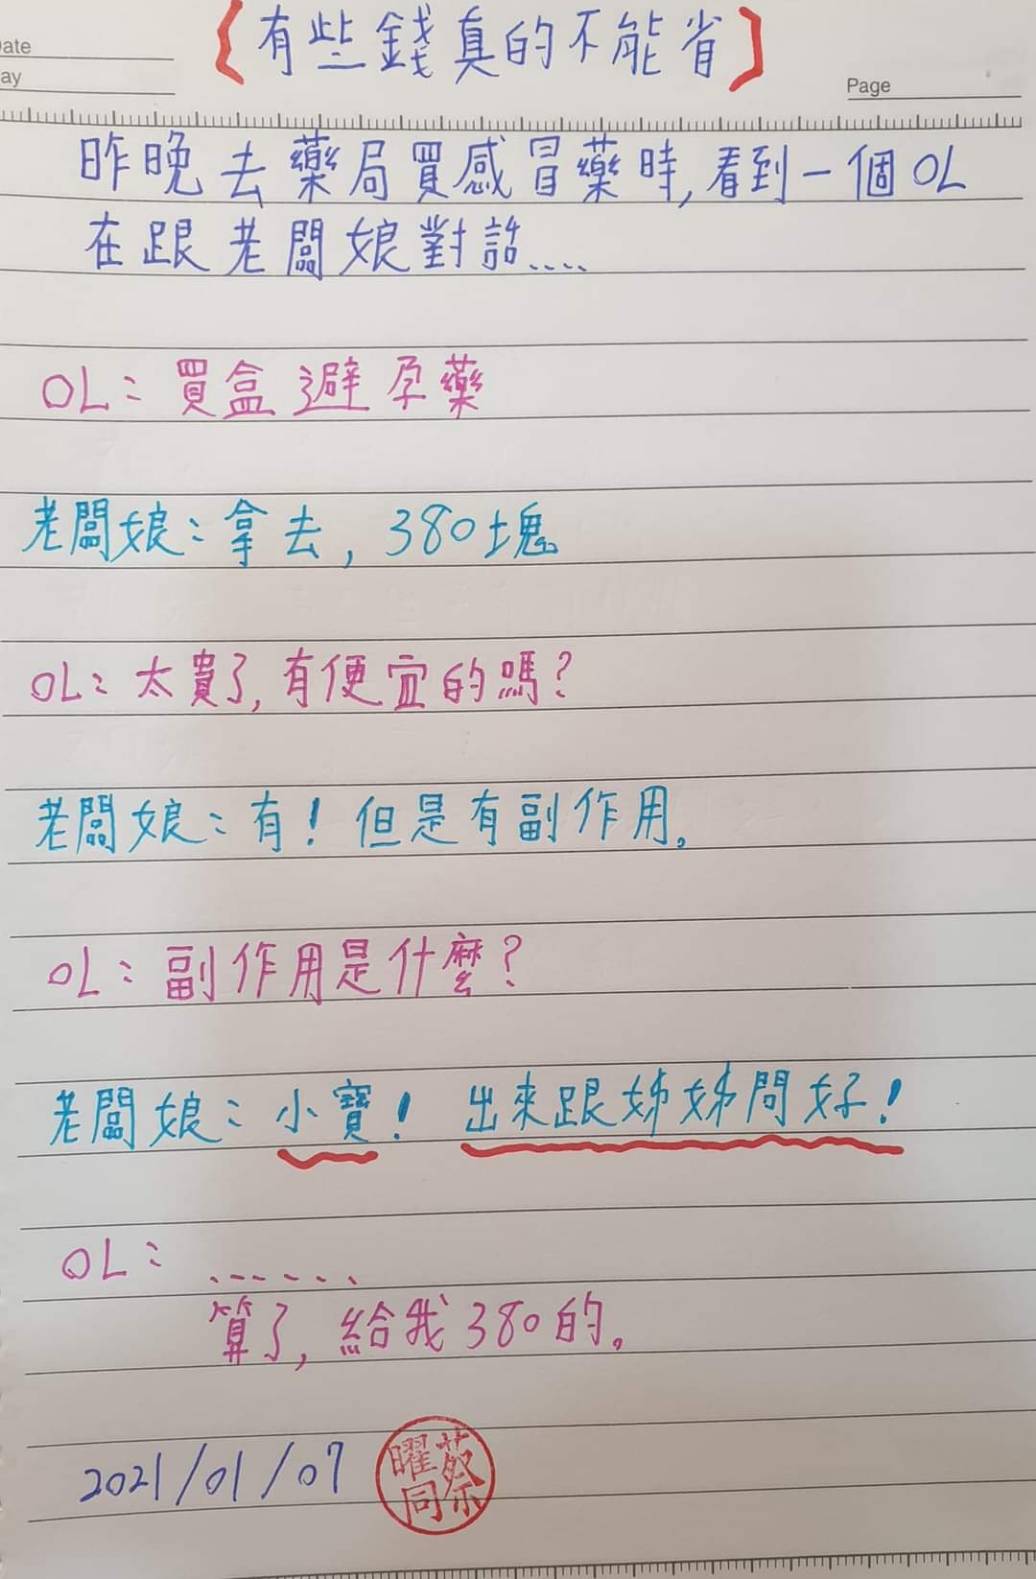 Date
Day
{有些錢真的不能省}
Page
昨晚去藥局買感冒藥時,看到一個OL
在跟老闆娘對話....
OL:買盒避孕藥
老闆娘:拿去,380塊
OL:太貴了,有便宜的嗎?
老闆娘:有!但是有副作用。
OL:副作用是什麼?
老闆娘:小寶!出來跟姊姊問好!
OL:......
算了,給我380的。
2021/01/07
蔡曜同